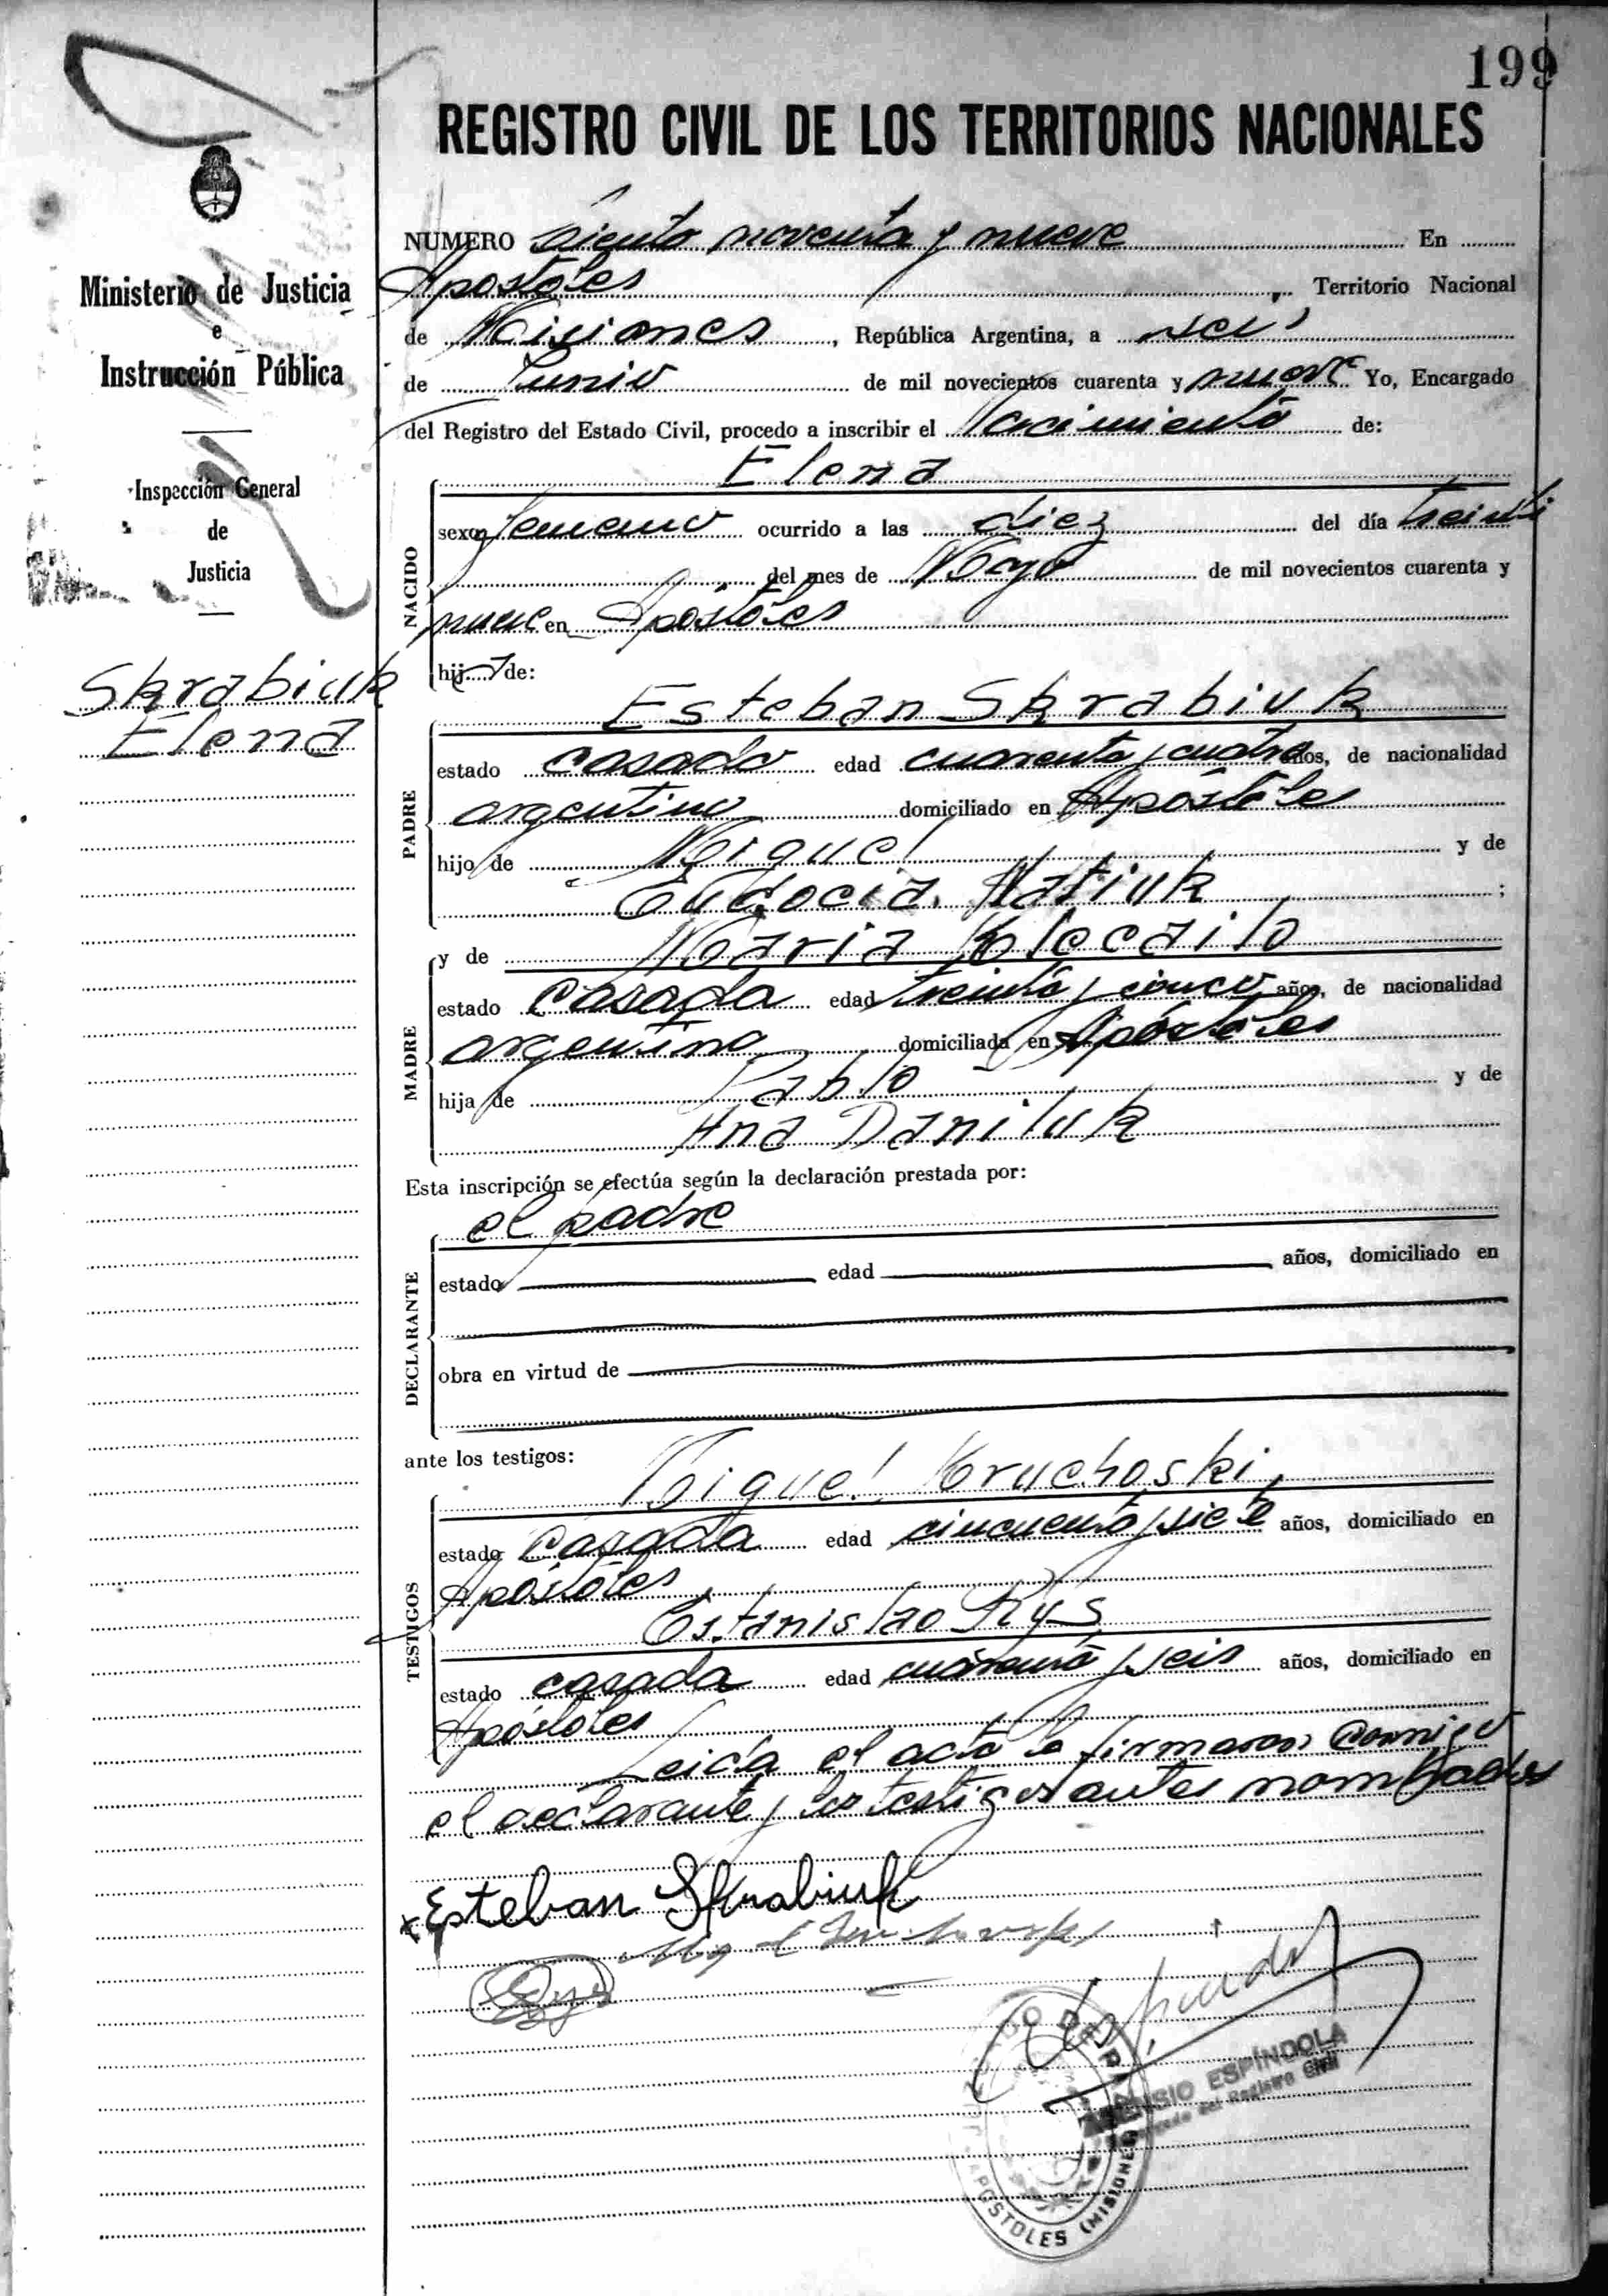 199
REGISTRO CIVIL DE LOS TERRITORIOS NACIONALES
Ministerio de Justicia
e
Instrucción Pública
Inspección General
de
Justicia
Skrabiuk
Elena
NUMERO siento noventa y nueve En
Apostoles Territorio Nacional
de Misiones, República Argentina, a seis
de Junio de mil novecientos cuarenta y nueve Yo, Encargado
del Registro del Estado Civil, procedo a inscribir el Nacimiento de:
Elena
NACIDO
sexo femenino ocurrido a las diez del día treinta
del mes de Mayo de mil novecientos cuarenta y
nueve en Apóstoles
hija de:
Esteban Skrabiuk
PADRE
estado casado edad cuarenta y cuatro años, de nacionalidad
argentino domiciliado en Apóstoles
hijo de Miguel y de
Eudocia Natiuk;
y de Maria Klecailo
MADRE
estado casada edad treinta y cinco años, de nacionalidad
argentina domiciliada en Apóstoles
hija de Pablo y de
Ana Daniluk
Esta inscripción se efectúa según la declaración prestada por:
el padre
DECLARANTE
estado edad años, domiciliado en
obra en virtud de
ante los testigos:
Miguel Kruchoski
TESTIGOS
estado casado edad cincuenta y siete años, domiciliado en
Apóstoles
Estanislao Rys
estado casado edad cuarenta y seis años, domiciliado en
Apóstoles
Leida el acta la firmaron conmigo
el declarante y los testigos antes nombrados
Esteban Skrabiuk
ESPÍNDOLA
Encargado del Registro Civil
APOSTOLES (MISIONES)